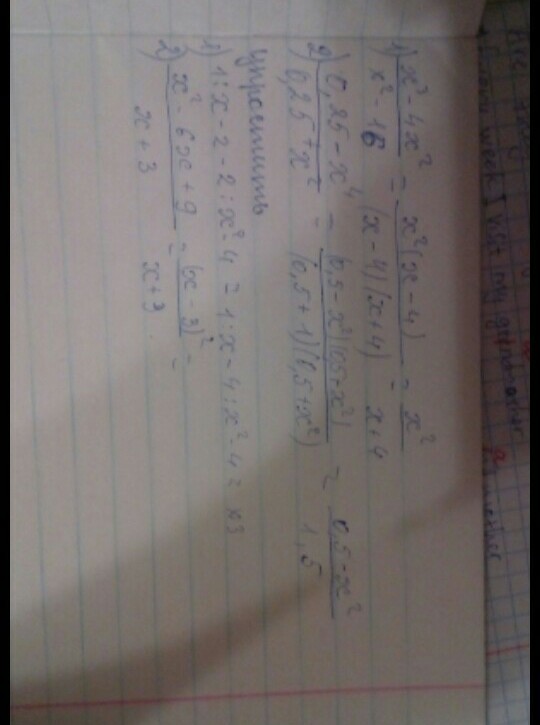 1) x³ - 4x² / x² - 16 = x²(x - 4) / (x - 4)(x + 4) = x² / x + 4
2) 0,25 - x⁴ / 0,25 + x² = (0,5 - x²)(0,5 + x²) / (0,5 + 1)(0,5 + x²) = 0,5 - x² / 1,5
Упростить
1) 1 : x - 2 - 2 : x² - 4 = 1 : x - 4 : x² - 4 =
2) x² - 6x + 9 / x + 3 = (x - 3)² / x + 3 =